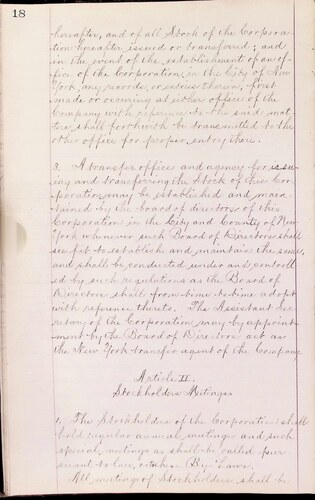 18
hereafter, and of all Stock of the Corpora-
tion hereafter issued or transferred; and
in the event of the establishment of an of-
fice of the Corporation in the City of New
York any records, or entries therein, first
made or occurring at either office of the
Company with reference to the said mat-
ters shall forthwith be transmitted to the
other office for proper entry there.
3. A transfer office and agency for issu-
ing and transferring the Stock of this Cor-
poration may be established and main-
tained by the board of directors of this
Corporation in the City and County of New
York whenever such Board of Directors shall
see fit to establish and maintain the same,
and shall be conducted under and controll-
ed by such regulations as the Board of
Directors shall from time to time adopt
with reference thereto. The Assistant Sec-
retary of the Corporation may by appoint-
ment by the Board of Directors act as
the New York transfer agent of the Company.
Article II.
Stockholders Meetings
1. The Stockholders of the Corporation shall
hold regular annual meetings and such
special meetings as shall be called pur-
suant to law, or these By-Laws.
All meetings of Stockholders shall be